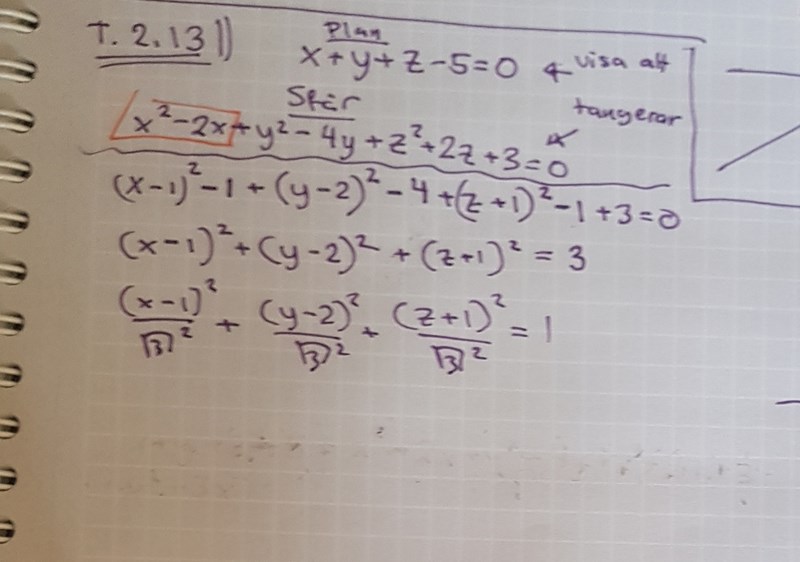 T. 2.13)
Plan
x+y+z-5=0 ← visa att
tangerar
Sfär
x²-2x+y²-4y+z²+2z+3=0
(x-1)²-1+(y-2)²-4+(z+1)²-1+3=0
(x-1)²+(y-2)²+(z+1)²=3
(x-1)²/√3² + (y-2)²/√3² + (z+1)²/√3² = 1